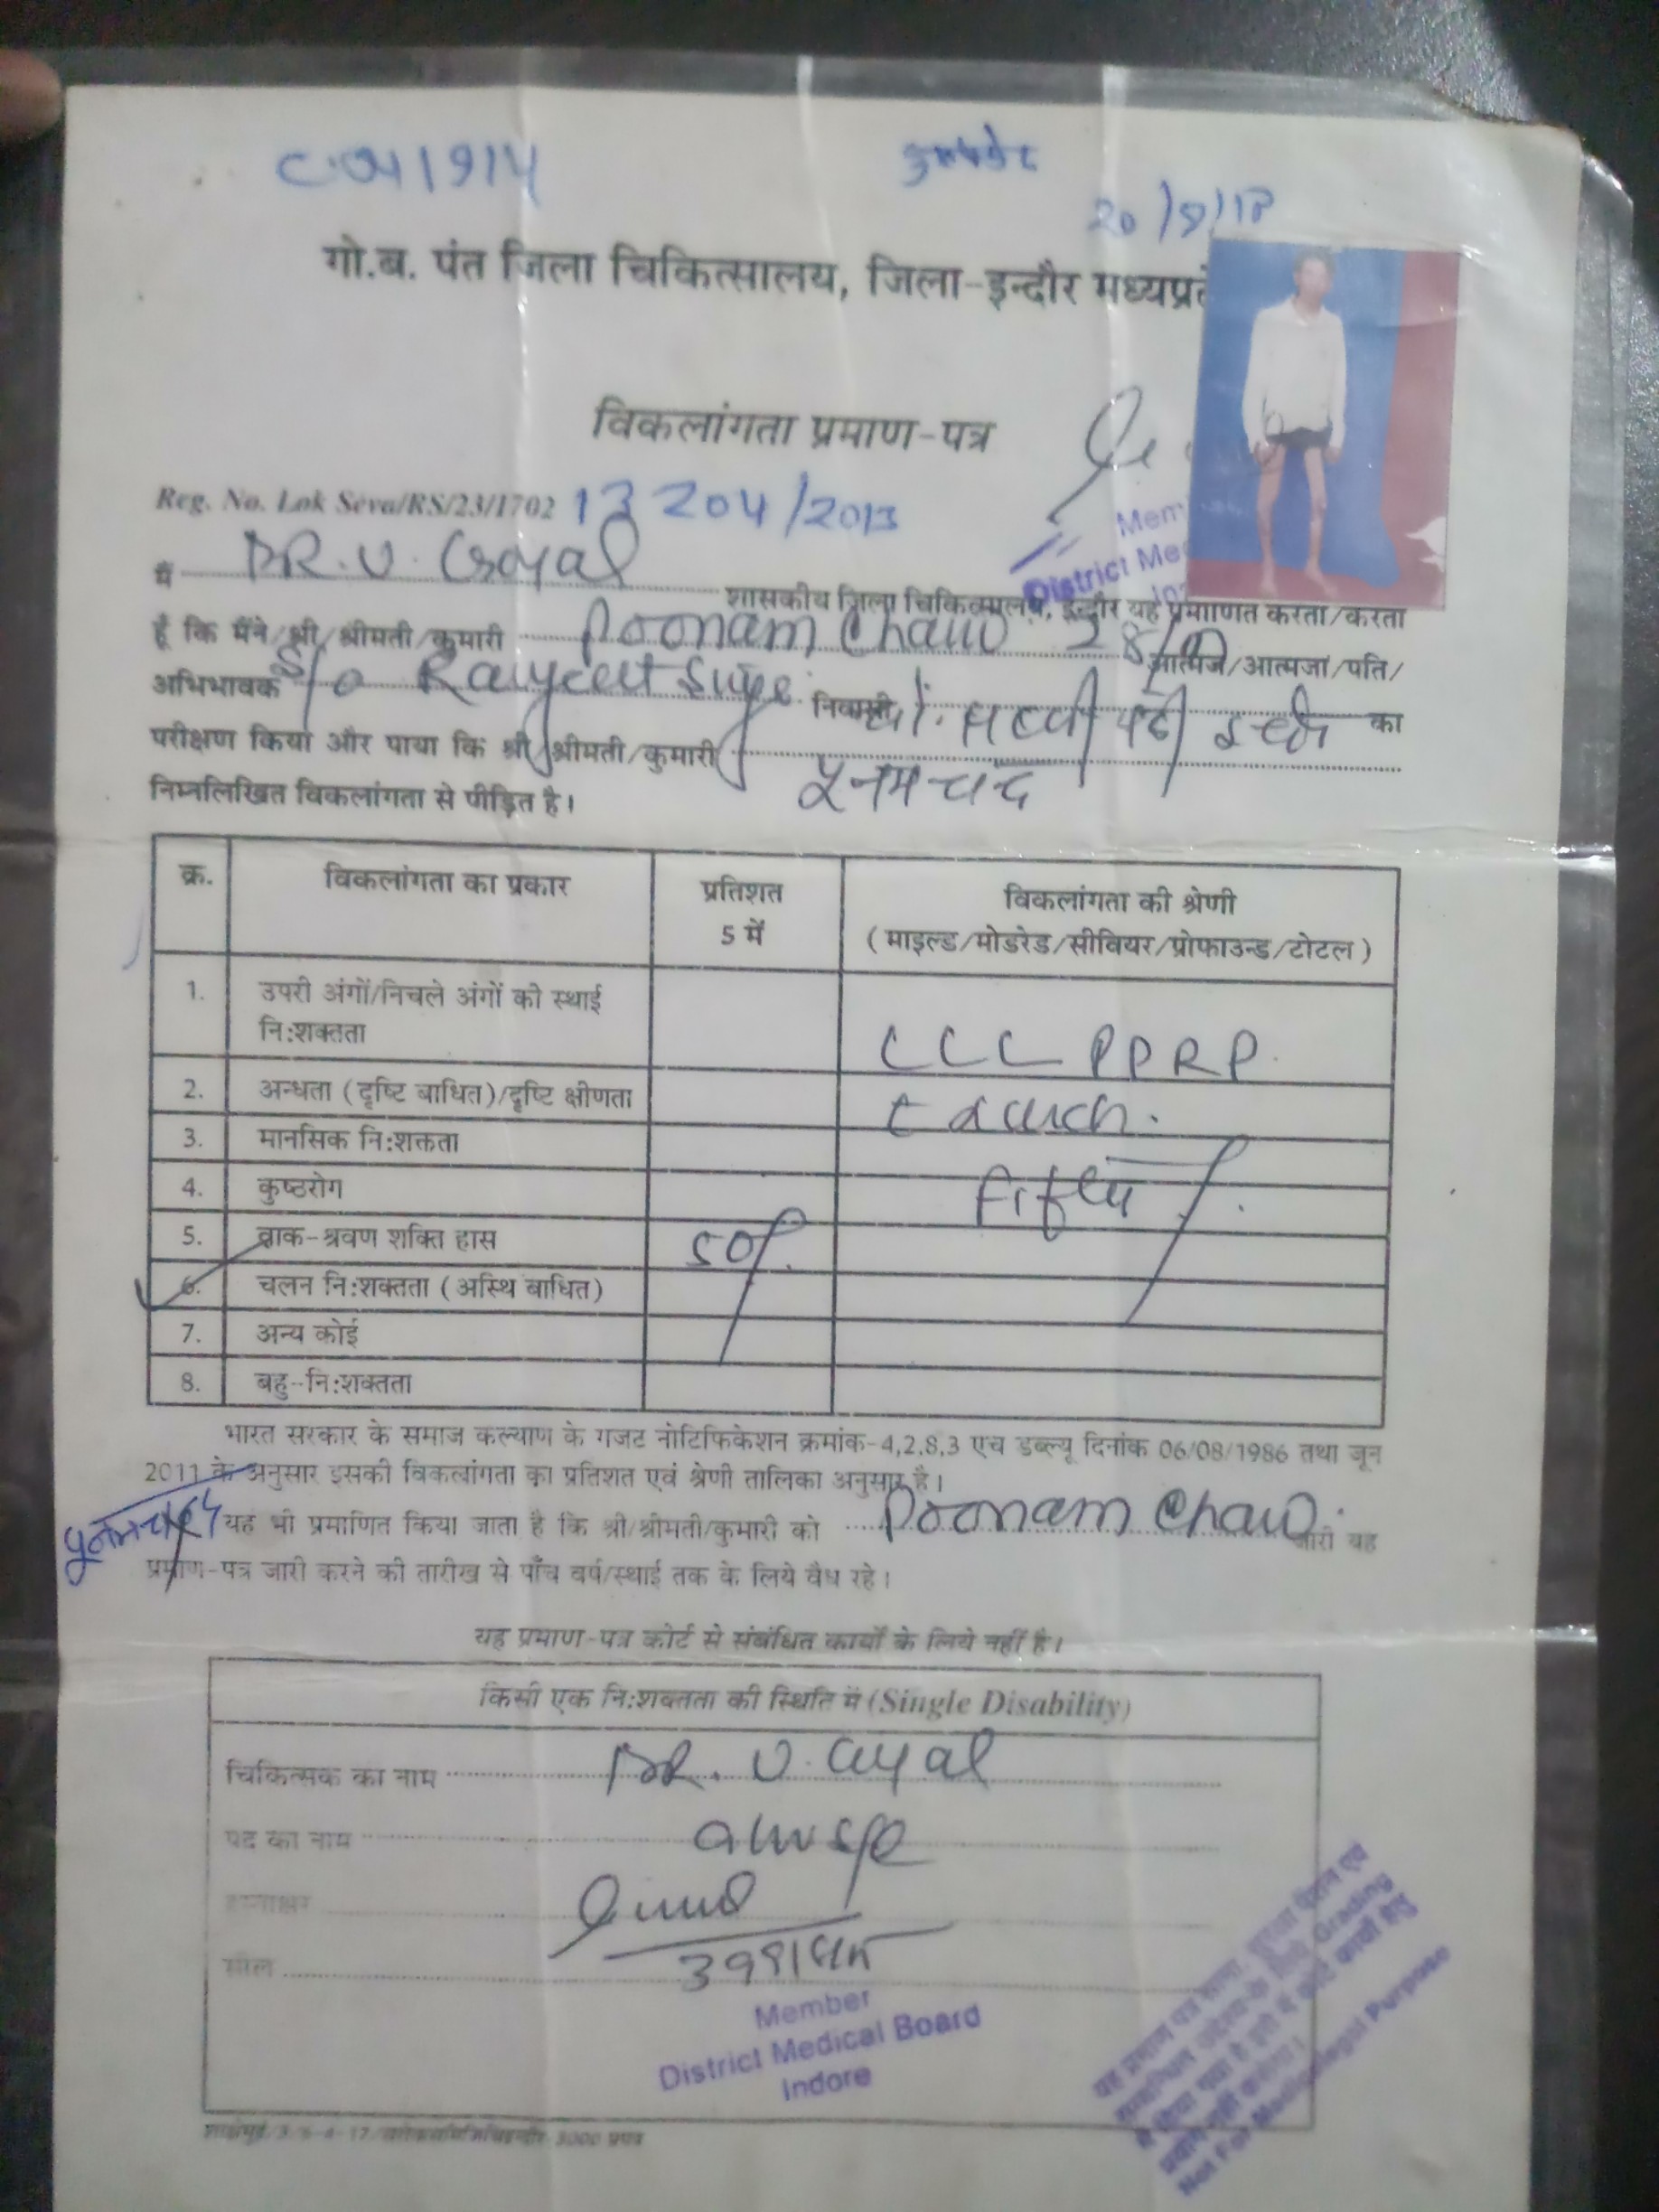 20/9/18
गो.ब. पंत जिला चिकित्सालय, जिला-इन्दौर मध्यप्रदे
विकलांगता प्रमाण-पत्र
Reg. No. Lok Seva/RS/23/1702 13204/2013
मैं DR. U. Goyal शासकीय जिला चिकित्सालय, इन्दौर यह प्रमाणित करता/करता
हूँ कि मैंने श्री/श्रीमती/कुमारी Poonam Chand 28/ आत्मज/आत्मजा/पति/
अभिभावक S/o Ranjeet निवासी का
परीक्षण किया और पाया कि श्री/श्रीमती/कुमारी पूनमचंद
निम्नलिखित विकलांगता से पीड़ित है।
क्र. विकलांगता का प्रकार प्रतिशत 5 में विकलांगता की श्रेणी
(माइल्ड/मोडरेड/सीवियर/प्रोफाउन्ड/टोटल)
1. उपरी अंगों/निचले अंगों की स्थाई
नि:शक्तता
CCC PPRP
2. अन्धता (दृष्टि बाधित)/दृष्टि क्षीणता
3. मानसिक नि:शक्तता
4. कुष्ठरोग Fifty %.
5. वाक-श्रवण शक्ति हास 50%.
6. चलन नि:शक्तता (अस्थि बाधित)
7. अन्य कोई
8. बहु-नि:शक्तता
भारत सरकार के समाज कल्याण के गजट नोटिफिकेशन क्रमांक-4,2,8,3 एच डब्ल्यू दिनांक 06/08/1986 तथा जून
2011 के अनुसार इसकी विकलांगता का प्रतिशत एवं श्रेणी तालिका अनुसार है।
पूनमचंद यह भी प्रमाणित किया जाता है कि श्री/श्रीमती/कुमारी को Poonam Chand जारी यह
प्रमाण-पत्र जारी करने की तारीख से पाँच वर्ष/स्थाई तक के लिये वैध रहे।
यह प्रमाण-पत्र कोर्ट से संबंधित कार्यों के लिये नहीं है।
किसी एक नि:शक्तता की स्थिति में (Single Disability)
चिकित्सक का नाम DR. U. Goyal
पद का नाम
हस्ताक्षर
सील
Member
District Medical Board
Indore
Not For Medicolegal Purpose